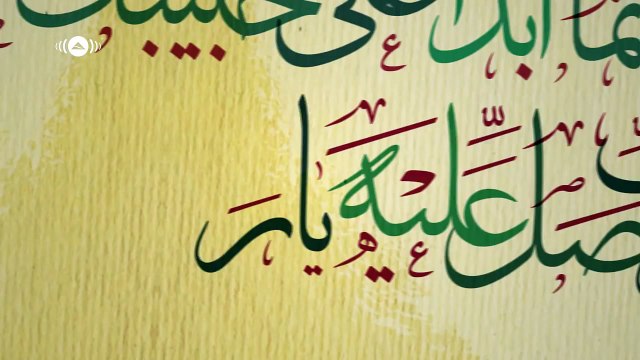 ما أبدا على حبيبك
صَلِّ عَلَيه يار